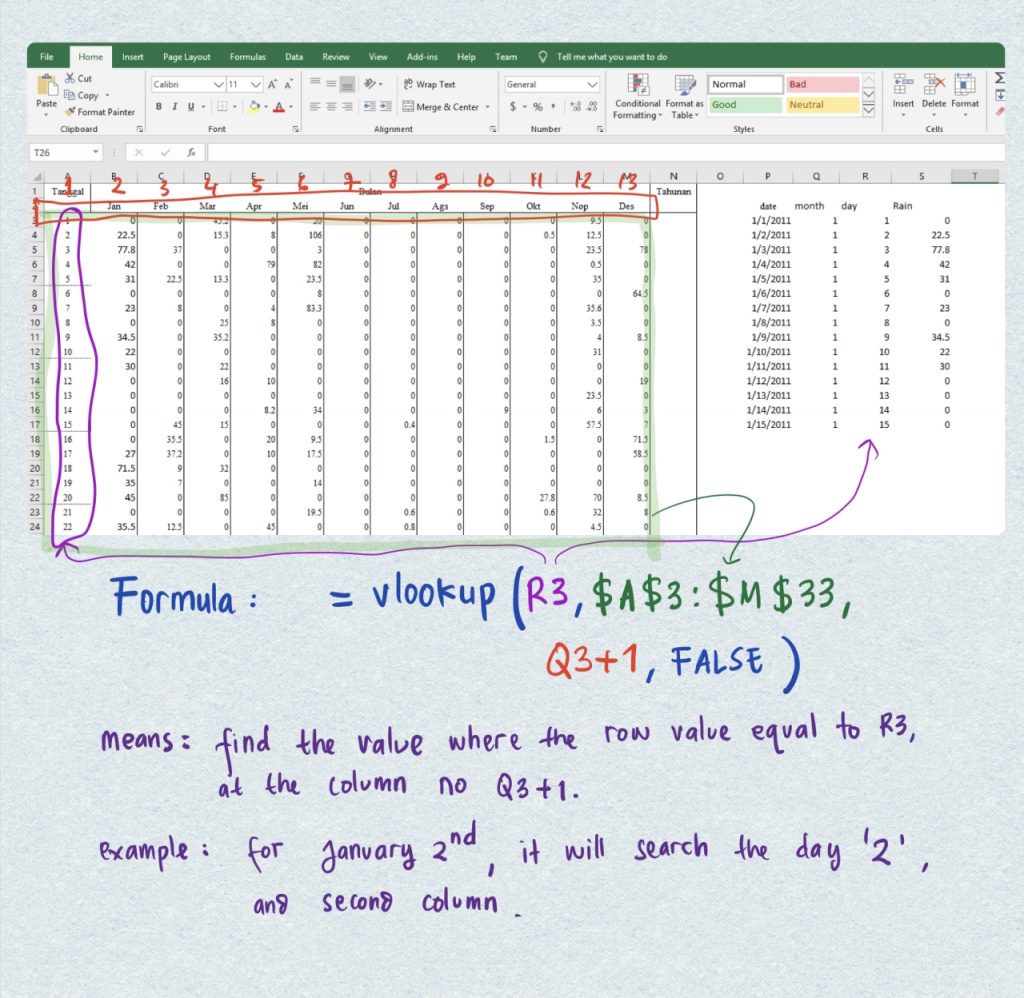 File Home Insert Page Layout Formulas Data Review View Add-ins Help Team Tell me what you want to do
Cut
Copy
Format Painter
Paste
Clipboard
Calibri 11
B I U
Font
Wrap Text
Merge & Center
Alignment
General
$ % ,
Number
Conditional Formatting
Format as Table
Normal Bad
Good Neutral
Styles
Insert Delete Format
Cells
T26 fx
A B C D E N O P Q R S T
1 2 3 4 5 6 7 8 9 10 11 12 13
1 Tanggal Bulan Tahunan
Jan Feb Mar Apr Mei Jun Jul Ags Sep Okt Nop Des date month day Rain
3 1 0 0 0 20 0 0 0 0 0 9.5 0 1/1/2011 1 1 0
4 2 22.5 0 15.3 8 106 0 0 0 0 0.5 12.5 0 1/2/2011 1 2 22.5
5 3 77.8 37 0 0 3 0 0 0 0 0 23.5 78 1/3/2011 1 3 77.8
6 4 42 0 0 79 82 0 0 0 0 0 0.5 0 1/4/2011 1 4 42
7 5 31 22.5 13.3 0 23.5 0 0 0 0 0 35 0 1/5/2011 1 5 31
8 6 0 0 0 0 8 0 0 0 0 0 0 64.5 1/6/2011 1 6 0
9 7 23 8 0 4 83.3 0 0 0 0 0 35.6 0 1/7/2011 1 7 23
10 8 0 0 25 8 0 0 0 0 0 0 3.5 0 1/8/2011 1 8 0
11 9 34.5 0 35.2 0 0 0 0 0 0 0 4 8.5 1/9/2011 1 9 34.5
12 10 22 0 0 0 0 0 0 0 0 0 31 0 1/10/2011 1 10 22
13 11 30 0 22 0 0 0 0 0 0 0 0 0 1/11/2011 1 11 30
14 12 0 0 16 10 0 0 0 0 0 0 0 19 1/12/2011 1 12 0
15 13 0 0 0 0 0 0 0 0 0 0 23.5 0 1/13/2011 1 13 0
16 14 0 0 0 8.2 34 0 0 0 9 0 6 3 1/14/2011 1 14 0
17 15 0 45 15 0 0 0 0.4 0 0 0 57.5 7 1/15/2011 1 15 0
18 16 0 35.5 0 20 9.5 0 0 0 0 1.5 0 71.5
19 17 27 37.2 0 10 17.5 0 0 0 0 0 0 58.5
20 18 71.5 9 32 0 0 0 0 0 0 0 0 0
21 19 35 7 0 0 14 0 0 0 0 0 0 0
22 20 45 0 85 0 0 0 0 0 0 27.8 70 8.5
23 21 0 0 0 0 19.5 0 0.6 0 0 0.6 32 8
24 22 35.5 12.5 0 45 0 0 0.8 0 0 0 4.5 0
Formula : = vlookup (R3, $A$3:$M$33,
Q3+1, FALSE )
means: find the value where the row value equal to R3,
at the column no Q3+1.
example: for january 2nd, it will search the day '2',
and second column.